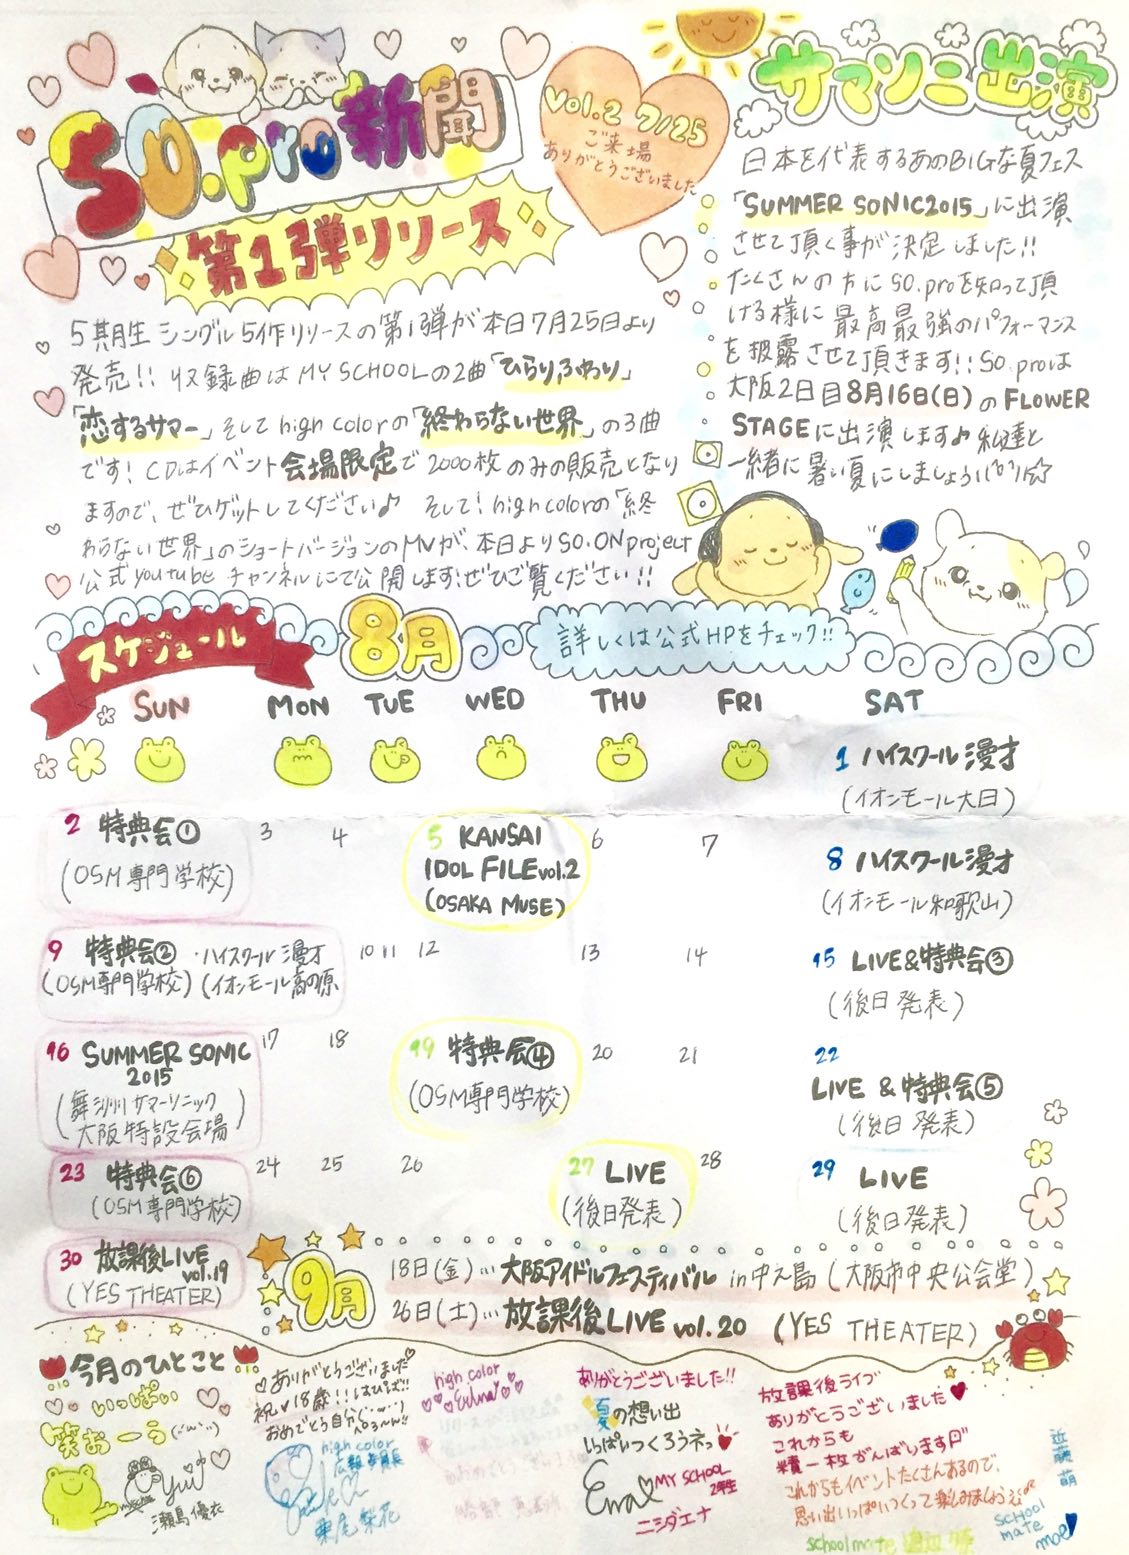 SO.pro新聞
第1弾リリース
vol.2 7/25
ご来場
ありがとうございました
サマソニ出演
日本を代表するあのBIGな夏フェス
「SUMMER SONIC2015」に出演
させて頂く事が決定しました!!
たくさんの方にSO.proを知って頂
ける様に最高最強のパフォーマンス
を披露させて頂きます!!SO.proは
大阪2日目8月16日(日)のFLOWER
STAGEに出演します♪私達と
一緒に暑い夏にしましょう
5期生シングル5作リリースの第1弾が本日7月25日より
発売!!収録曲はMY SCHOOLの2曲「ひらり、ふわり」
「恋するサマー」そしてhigh colorの「終わらない世界」の3曲
です!CDはイベント会場限定で2000枚のみの販売となり
ますので、ぜひゲットしてください♪ そして!high colorの「終
わらない世界」のショートバージョンのMVが、本日よりSO.ON project
公式youtubeチャンネルにて公開します!ぜひご覧ください!!
スケジュール
8月
詳しくは公式HPをチェック!!
SUN MON TUE WED THU FRI SAT
1 ハイスクール漫才
(イオンモール大日)
2 特典会①
(OSM専門学校)
3
4
5 KANSAI
IDOL FILE vol.2
(OSAKA MUSE)
6
7
8 ハイスクール漫才
(イオンモール和歌山)
9 特典会② ・ハイスクール漫才
(OSM専門学校) (イオンモール高の原
10 11 12
13
14
15 LIVE&特典会③
(後日発表)
16 SUMMER SONIC
2015
(舞洲サマーソニック
大阪特設会場)
17
18
19 特典会④
(OSM専門学校)
20
21
22
LIVE & 特典会⑤
(後日発表)
23 特典会⑥
(OSM専門学校)
24
25
26
27 LIVE
(後日発表)
28
29 LIVE
(後日発表)
30 放課後LIVE
vol.19
(YES THEATER)
9月
18日(金)…大阪アイドルフェスティバル in中之島(大阪市中央公会堂)
26日(土)…放課後LIVE vol.20 (YES THEATER)
今月のひとこと
いっぱい
笑おーう
瀬島優衣
ありがとうございました
祝♥18歳!!
おめでとう自分
high color
広報委員長
東尾梨花
high color
ありがとうございました!!
夏の想い出
いっぱいつくろうネっ♥
Ema♡MY SCHOOL
2年生
ニシダエナ
放課後ライブ
ありがとうございました♥
これからも
精一杯がんばります
これからもイベントたくさんあるので、
思い出いっぱいつくって楽しみましょう
schoolmate
近藤萌
school
mate
moe